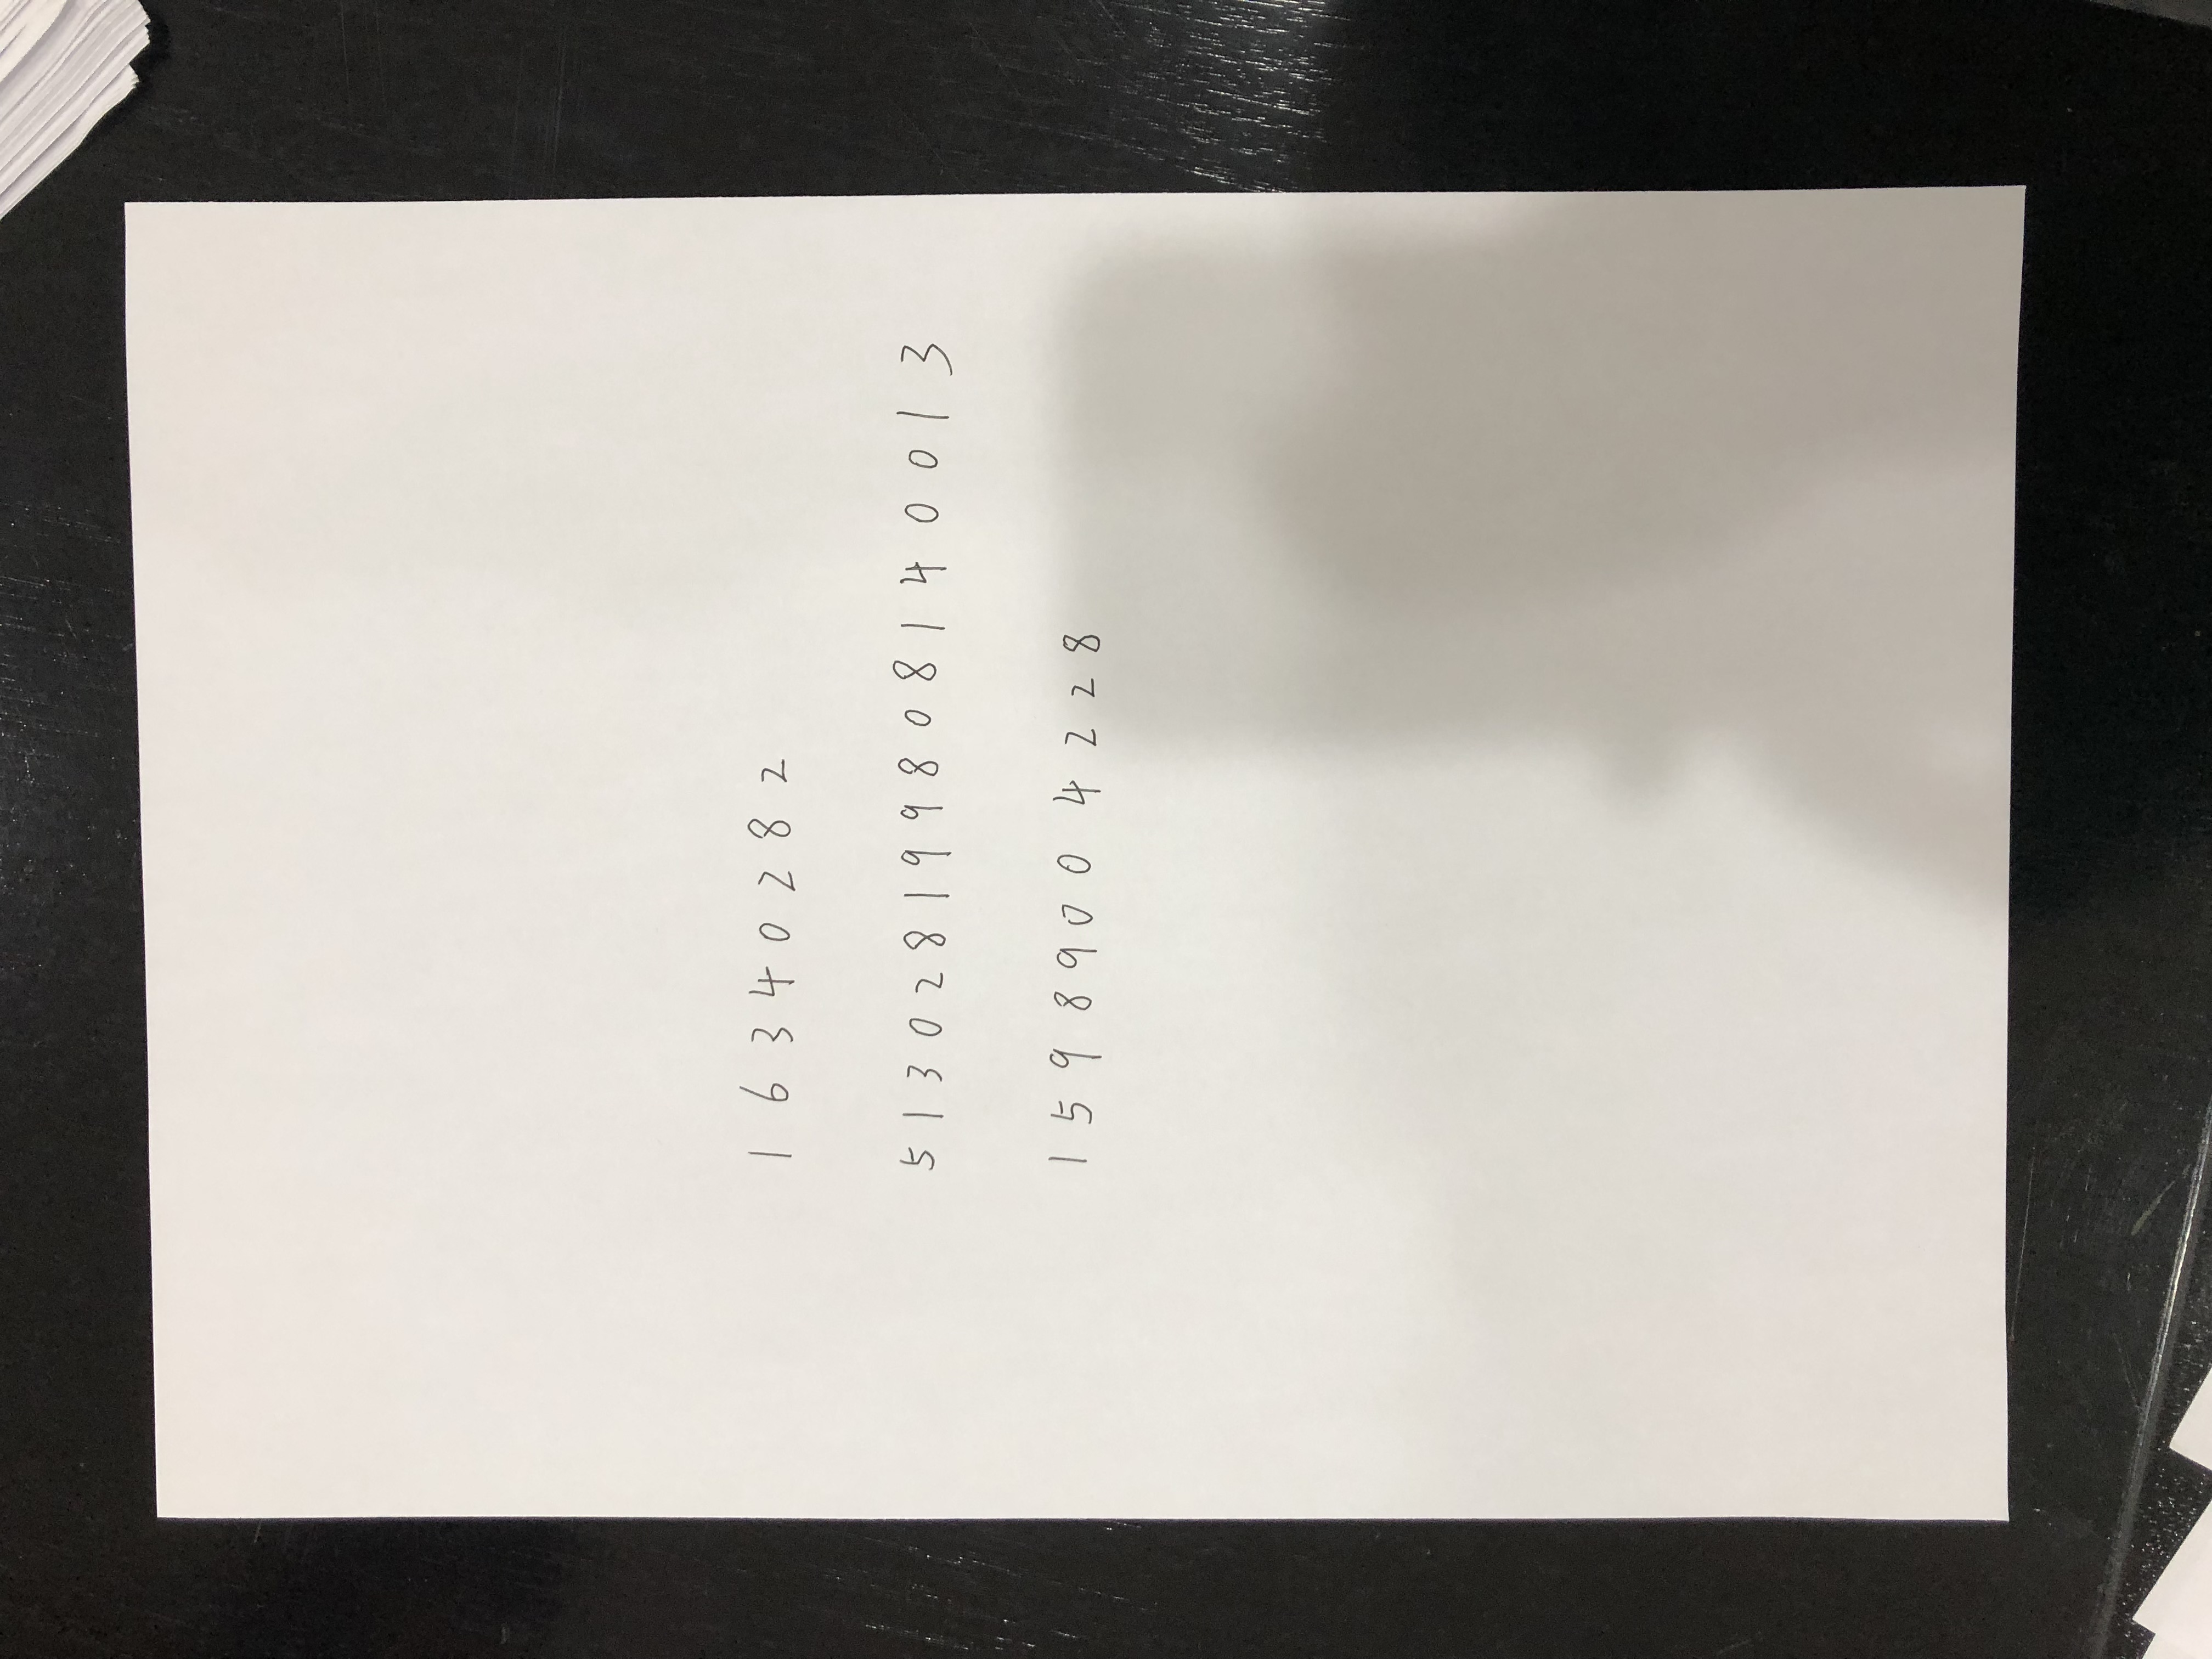 16340282
513028199808140013
15989004228